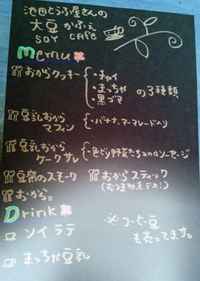 池田とうふ屋さんの
大豆かふぇ
SOY CAFE
Menu
おからクッキー ・チャイ
・まっちゃ の3種類
・黒ゴマ
豆乳おから
マフィン ・バナナ、マーマレード入り
豆乳おから
ケークサレ ・色どり野菜たちandソーセージ
豆腐のスモーク おからスティック
おから。 (おつまみ系デス!)
Drink
ソイラテ ※コーヒー豆
も売ってます。
まっちゃ豆乳